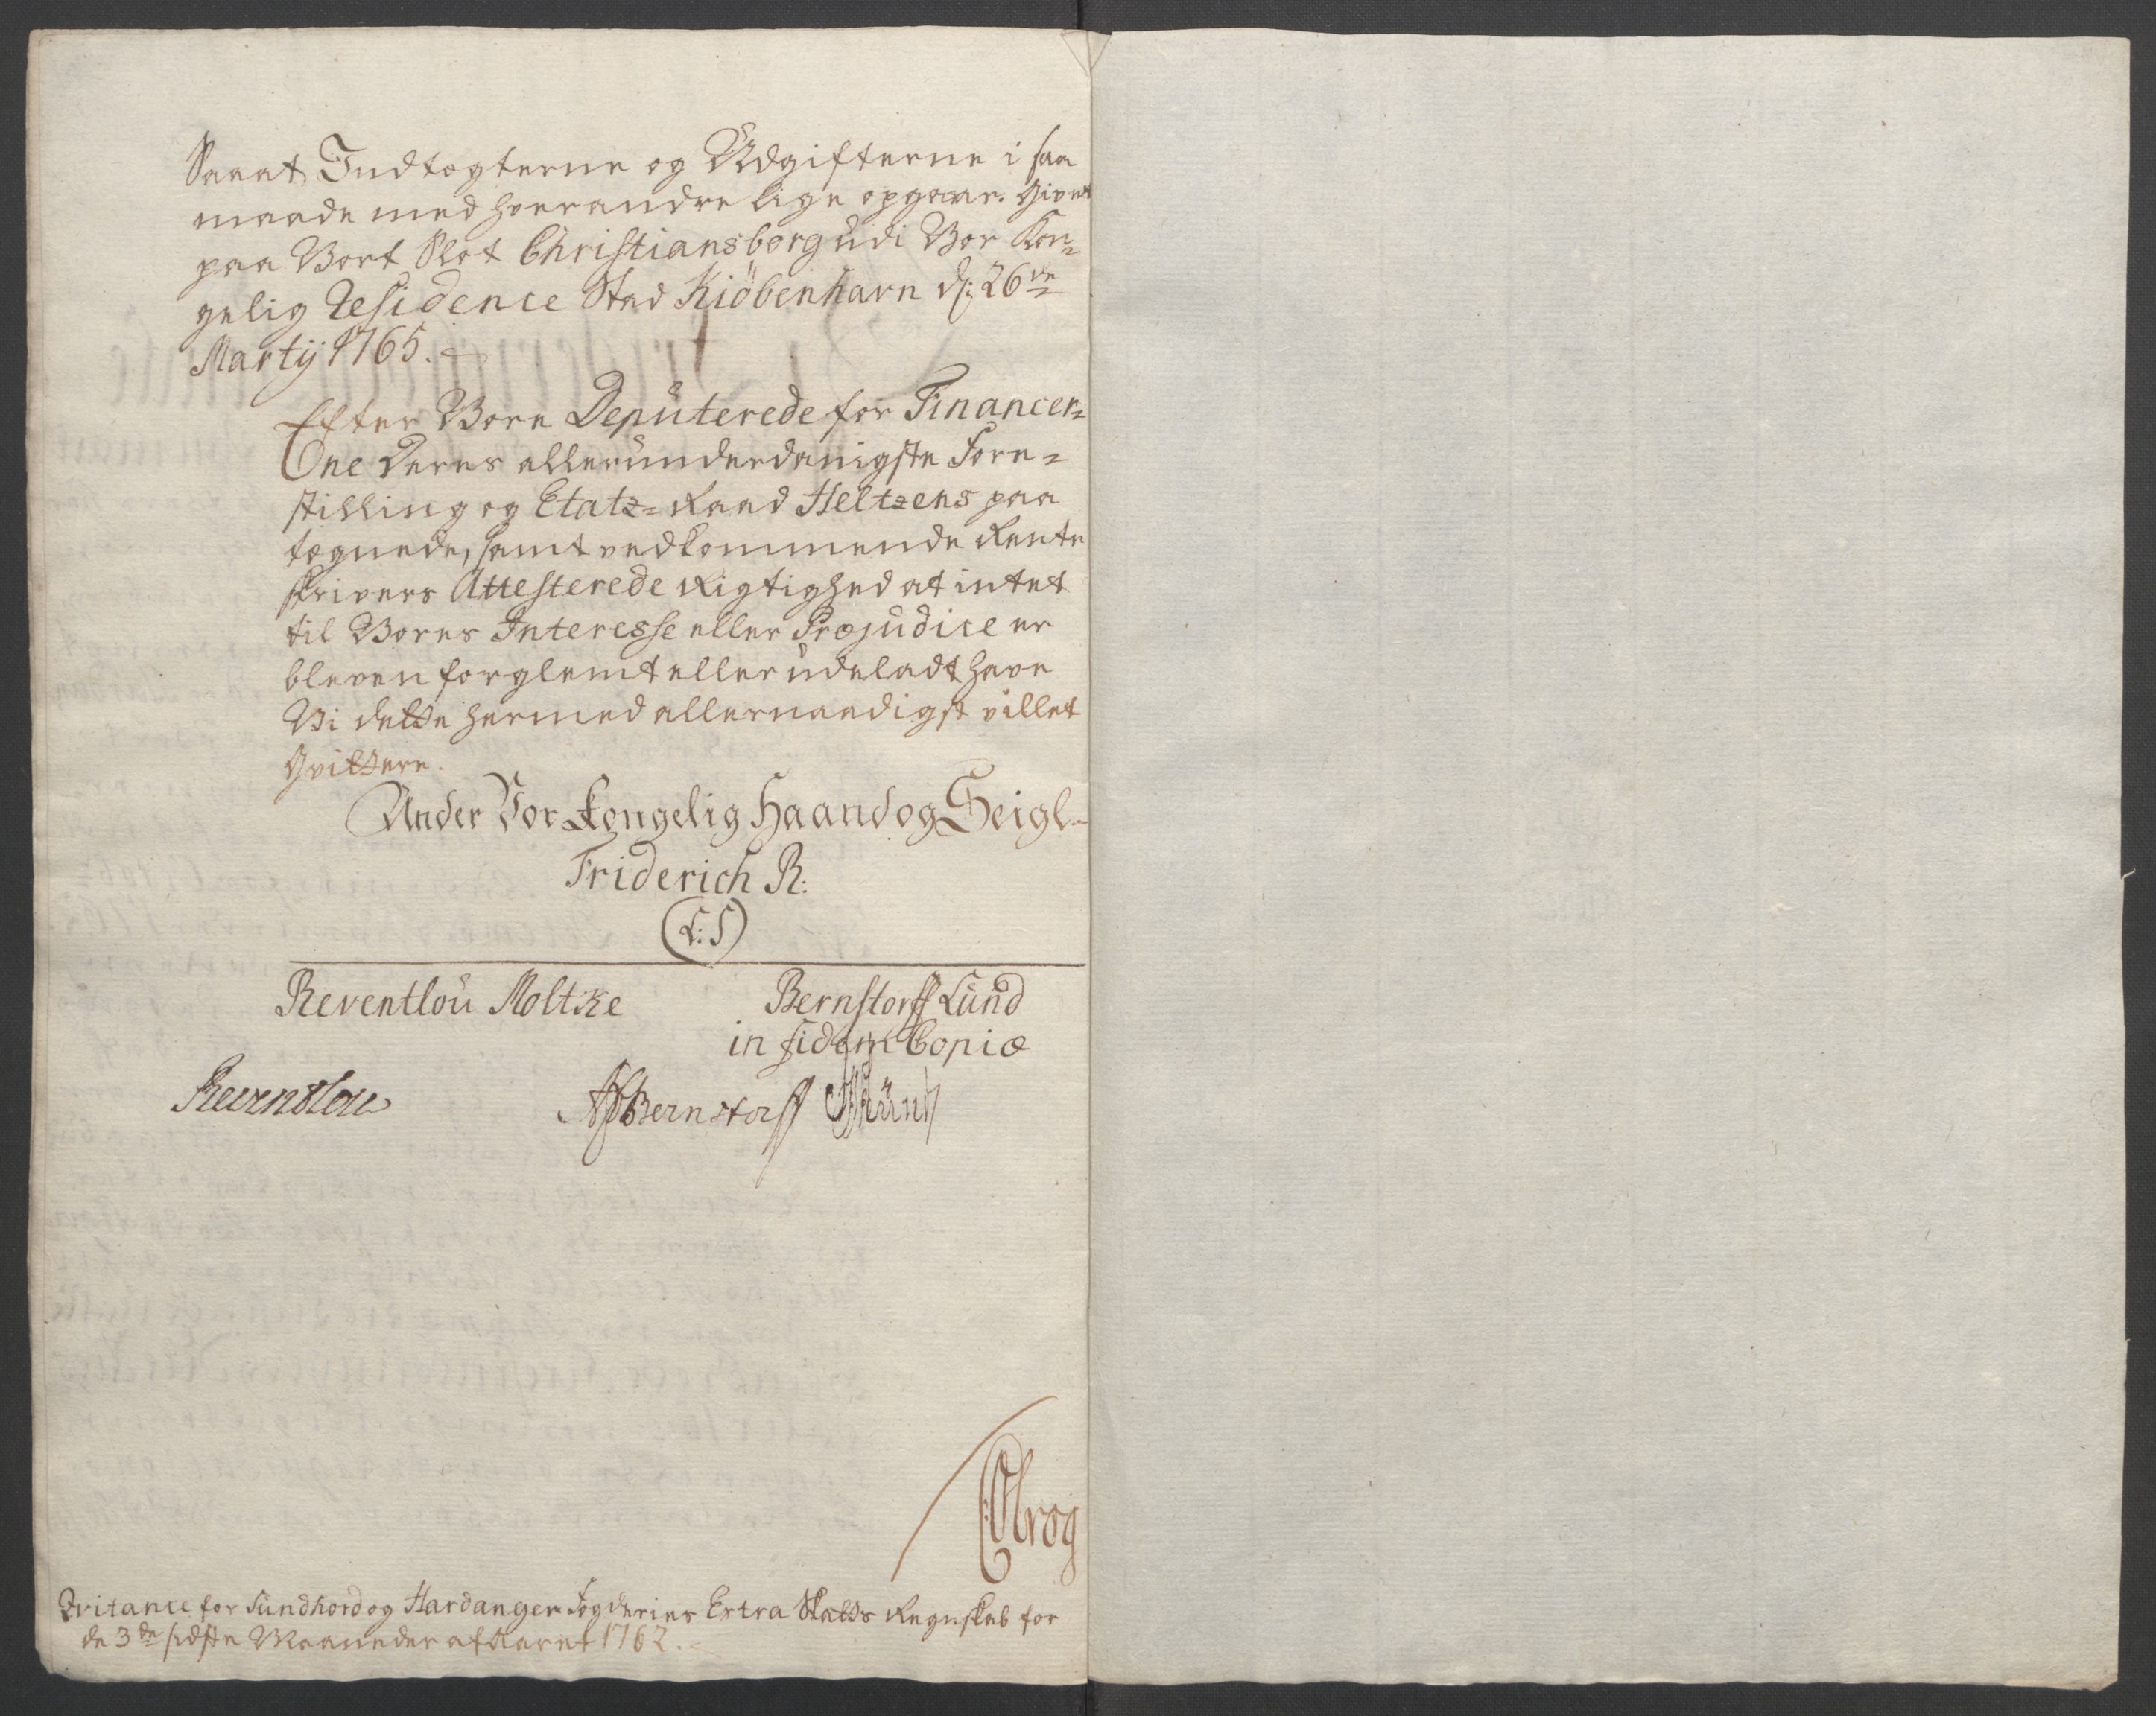 Saaat Indtægterne og Udgifterne i saa
maade med hverandre lige opgaar. Givet
paa Vort Slot Christiansborg udi Vor Kon=
gelig Residence Stad Kiöbenhavn d: 26de
Martij 1765.
Efter Vore Deputerede for Financer=
One Deres allerunderdanigste Fore=
stilling og Etatz=Raad Heltzens paa
tegnede, samt vedkommende Rente
skrivers Attesterede Rigtighed at intet
til Vores Interesse eller Præjudice er
bleven forglemt eller udeladt have
Vi dette hermed allernaadigst villet
Qvittere.
Under Vor Kongelig Haand og Seigl
Friderich R:
(L:S)
Reventlou Moltke Bernstorff Lund
in fidem Copiæ
Reventlou APBernstorff
Qvitance for Sundhord og Hardanger Fogderies Extra Skatts Regnskab for
de 3de sidste Maaneder af Aaret 1762.